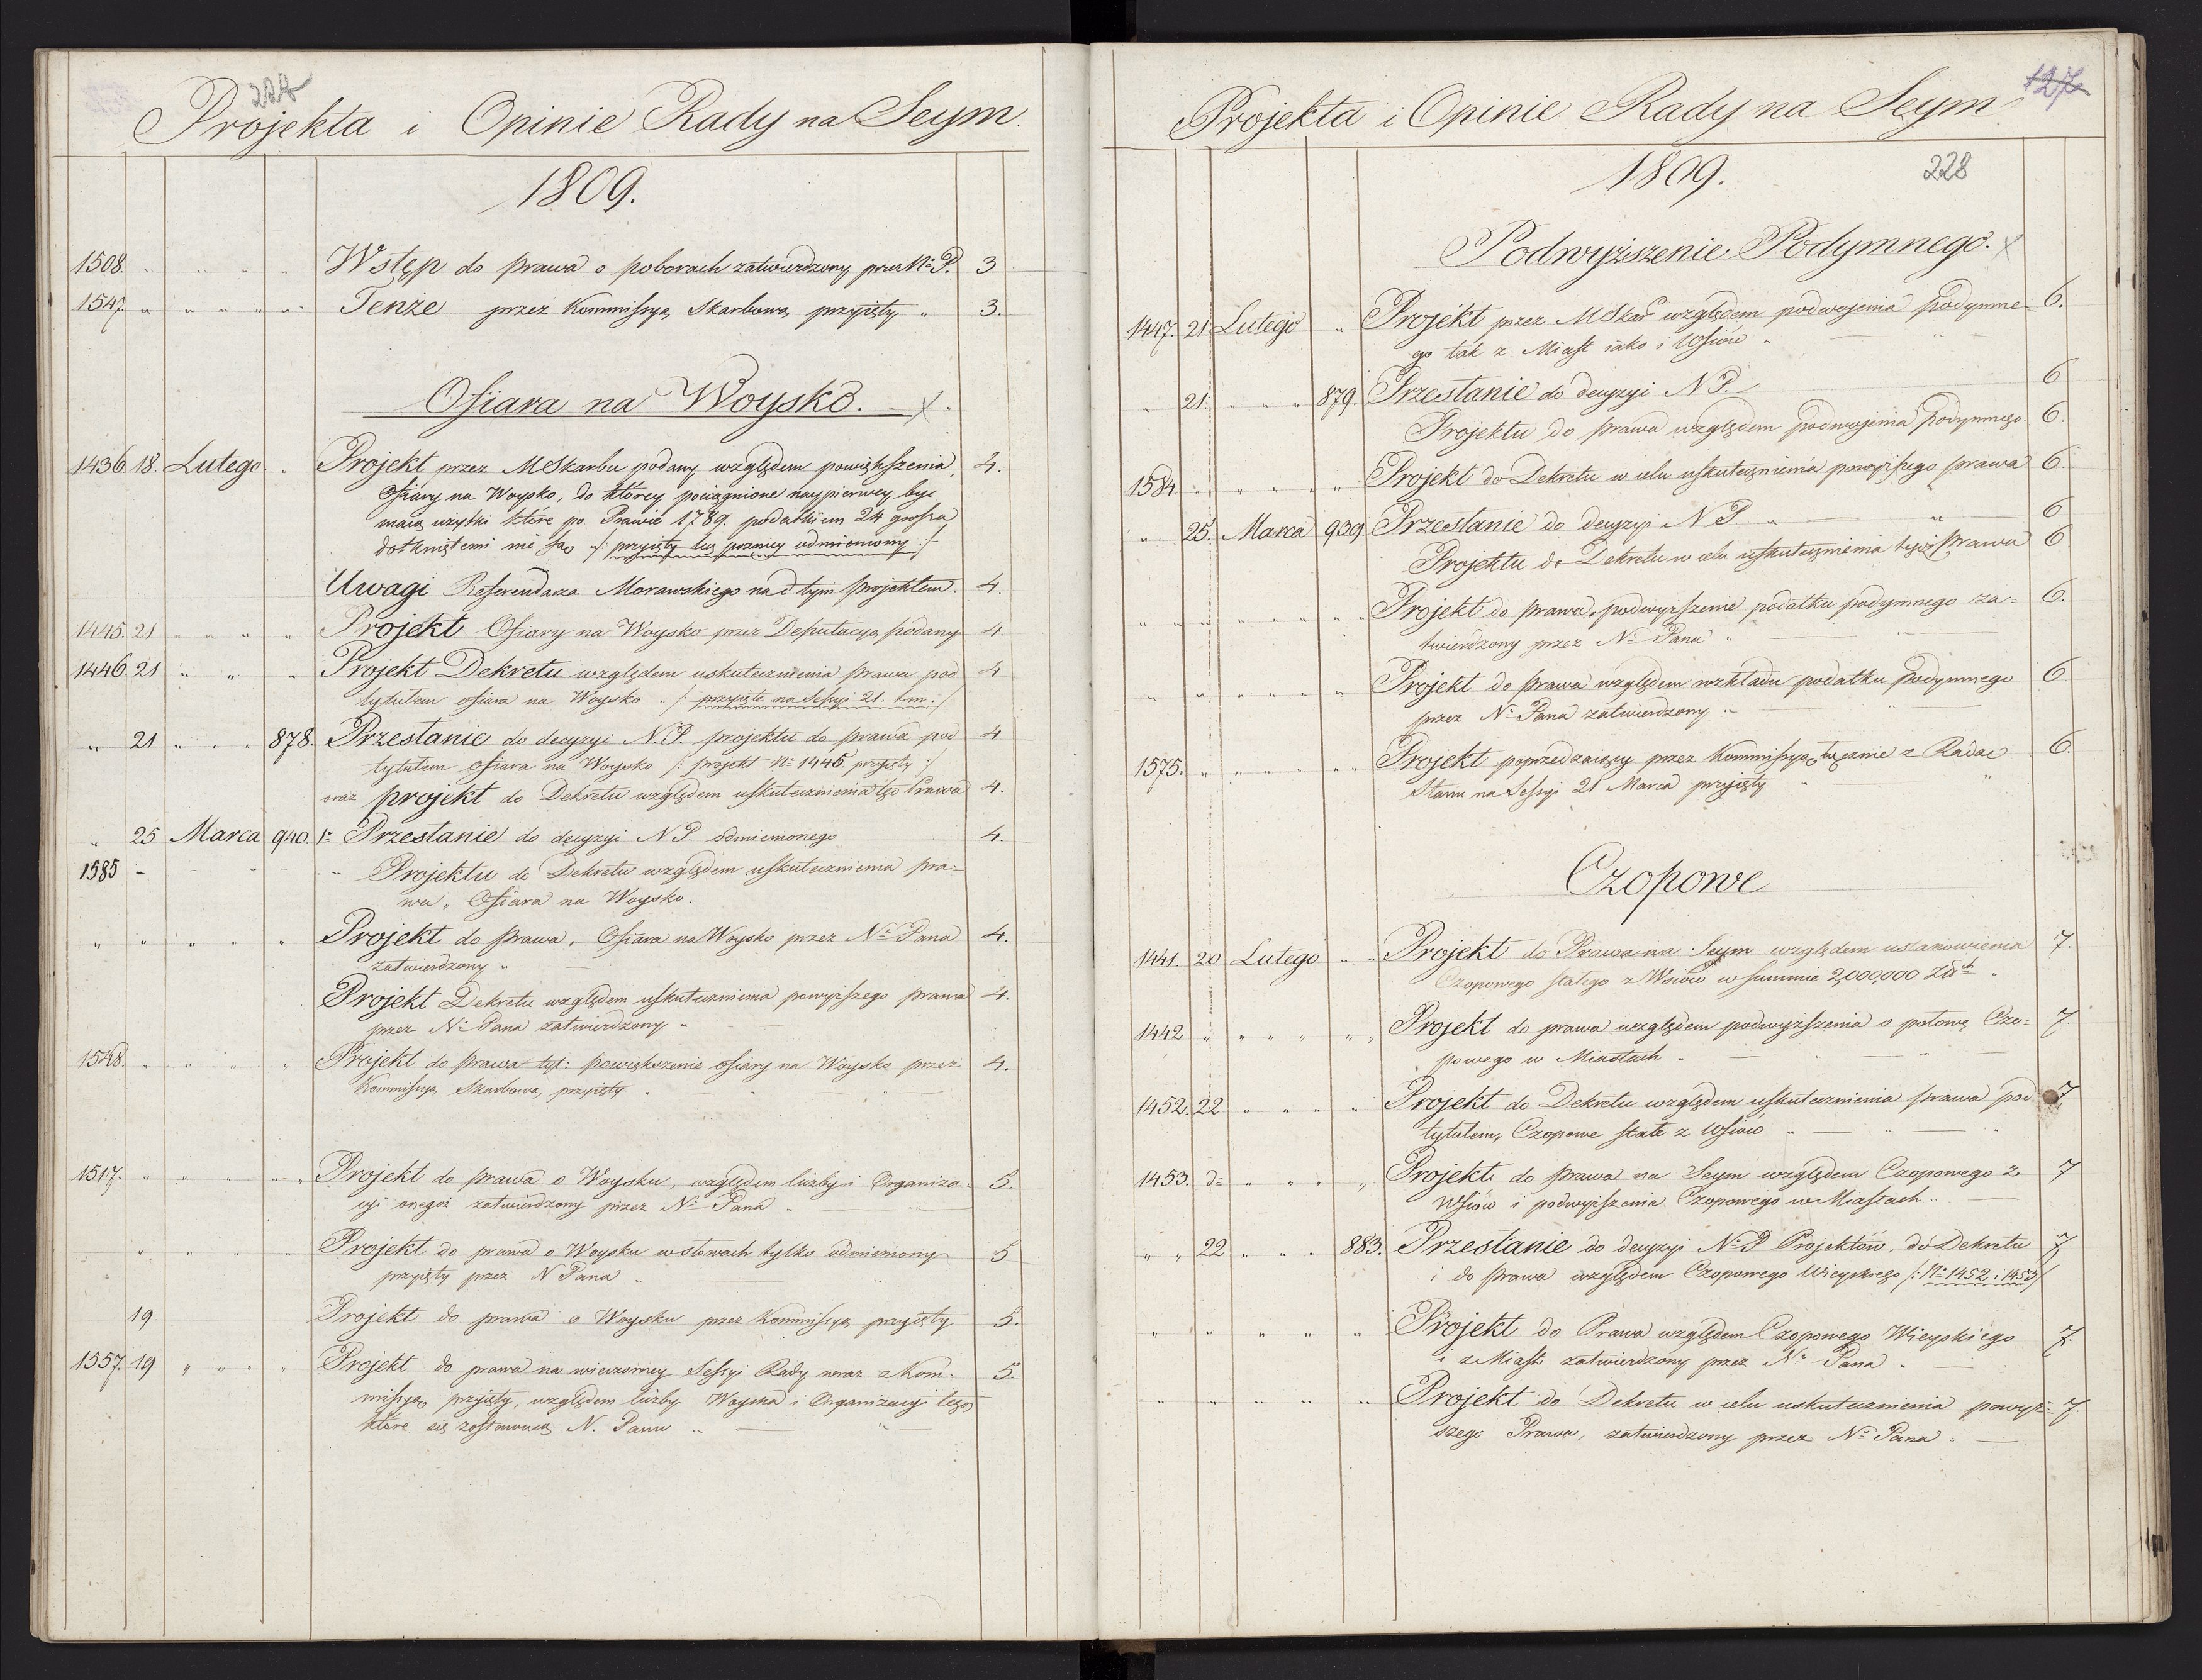 227
Projekta i Opinie Rady na Seym.
1809.
1508. " " " " Wstęp do prawa o poborach zatwierdzony przez N: P. 3
1547. " " " " Tenże przez Kommissyą Skarbową przyięty " 3.
Ofiara na Woysko. x.
1436 18. Lutego " Projekt przez MSkarbu podany względem powiększenia 4.
Ofiary na Woysko, do którey pociągnione naypierwey być
maią użytki które po Prawie 1789. podatkiem 24 grosza
dotkniętemi nie są /: przyięty lecz pozniey odmieniony :/
Uwagi Referendarza Morawskiego nad tym projektem. 4.
1445. 21 " " " " Projekt Ofiary na Woysko przez Deputacyą podany 4.
1446. 21 " " " Projekt Dekretu względem uskutecznienia prawa pod 4
tytułem ofiara na Woysko " /: przyięte na Sessyi 21. t.m. :/
" 21 " " " 878. Przesłanie do decyzyi N.P. projektu do prawa pod 4
tytułem ofiara na Woysko /: projekt N: 1445. przyięty :/
oraz projekt do Dekretu względem uskutecznienia tego Prawa 4.
" 25 Marca 940. 1: Przesłanie do decyzyi N.P. odmienionego 4.
1585 - - - - " Projektu do Dekretu względem uskutecznienia pra-
wa, Ofiara na Woysko.
" " " " " Projekt do prawa, Ofiara na Woysko przez N: Pana 4.
zatwierdzony "
Projekt Dekretu względem uskutecznienia powyższego prawa 4.
przez N: Pana zatwierdzony "
1548. " " " " Projekt do prawa tyt: powiększenie ofiary na Woysko przez 4.
Kommissyą Skarbową przyięty "
1517. " " " " " Projekt do prawa o Woysku, względem liczby i Organiza- 5.
cyi onegoż zatwierdzony przez N: Pana "
" " " " " Projekt do prawa o Woysku w słowach tylko odmieniony 5
przyięty przez N Pana "
19 Projekt do prawa o Woysku przez Kommissyą przyięty 5.
1557. 19 " " " " Projekt do prawa na wieczorney Sessyi Rady wraz z Kom- 5.
missyą przyięty, względem liczby Woyska i Organizacyi tego
które się zostawuią N. Panu "
127
Projekta i Opinie Rady na Seym
1809.
228
Podwyższenie Podymnego. x
1447. 21 Lutego " Projekt przez MSkar względem podwojenia podymne- 6.
go tak z Miast iako i Wsiów "
" 21. " " " 879. Przesłanie do decyzyi N P. 6
Projektu do prawa względem podwojenia Podymnego. 6.
1584. " " " " Projekt do Dekretu w celu uskutecznienia powyższego prawa 6.
" 25. Marca 939. Przesłanie do decyzyi N P " 6
Projektu do Dekretu w celu uskutecznienia tegoż Prawa 6
" " " " " Projekt do prawa, podwyższenie podatku podymnego za= 6.
twierdzony przez N: Pana "
" " " " " Projekt do prawa względem rozkładu podatku Podymnego 6.
przez N: Pana zatwierdzony "
1575. " " " " Projekt poprzedzaiący przez Kommissyą łącznie z Radą 6.
Stanu na Sessyi 21 Marca przyięty "
Czopowe
1441. 20 Lutego " " Projekt do Prawa na Seym względem ustanowienia 7.
Czopowego stałego z Wsiów w summie 2,000,000 Złt "
1442 " " " " " Projekt do prawa względem podwyższenia o połowę Czo= 7.
powego w Miastach "
1452. 22 " " " " Projekt do Dekretu względem uskutecznienia prawa pod 7
tytułem, Czopowe stałe z Wsiów "
1453. d= " " " " Projekt do prawa na Seym względem Czopowego z 7
Wsiów i podwyższenia Czopowego w Miastach "
" " 22 " " " 883. Przesłanie do decyzyi N: P Projektów, do Dekretu 7
i do prawa względem Czopowego Wieyskiego /: N: 1452 i 1453 :/
" " " " " Projekt do Prawa względem Czopowego Wieyskiego 7.
i z Miast zatwierdzony przez N: Pana "
" " " " " Projekt do Dekretu w celu uskutecznienia powyż- 7.
szego Prawa, zatwierdzony przez N: Pana "